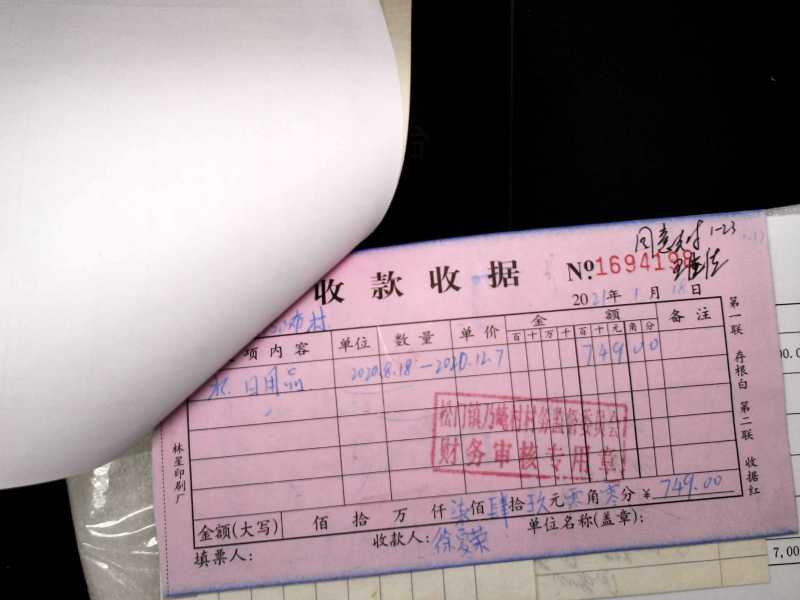 收款收据 №1694198
同意支付 1-23
2021年1月18日
村
项内容 单位 数量 单价 金额 备注
百十万千百十元角分
日用品 2020.8.18-2020.12.7 749.00
松门镇乃崦村村务监督委员会
财务审核专用章
金额(大写) 佰拾万仟柒佰肆拾玖元零角零分 ¥749.00
填票人: 收款人:徐爱荣 单位名称(盖章):
林星印刷厂
第一联 存根白 第二联 收据红
7,00